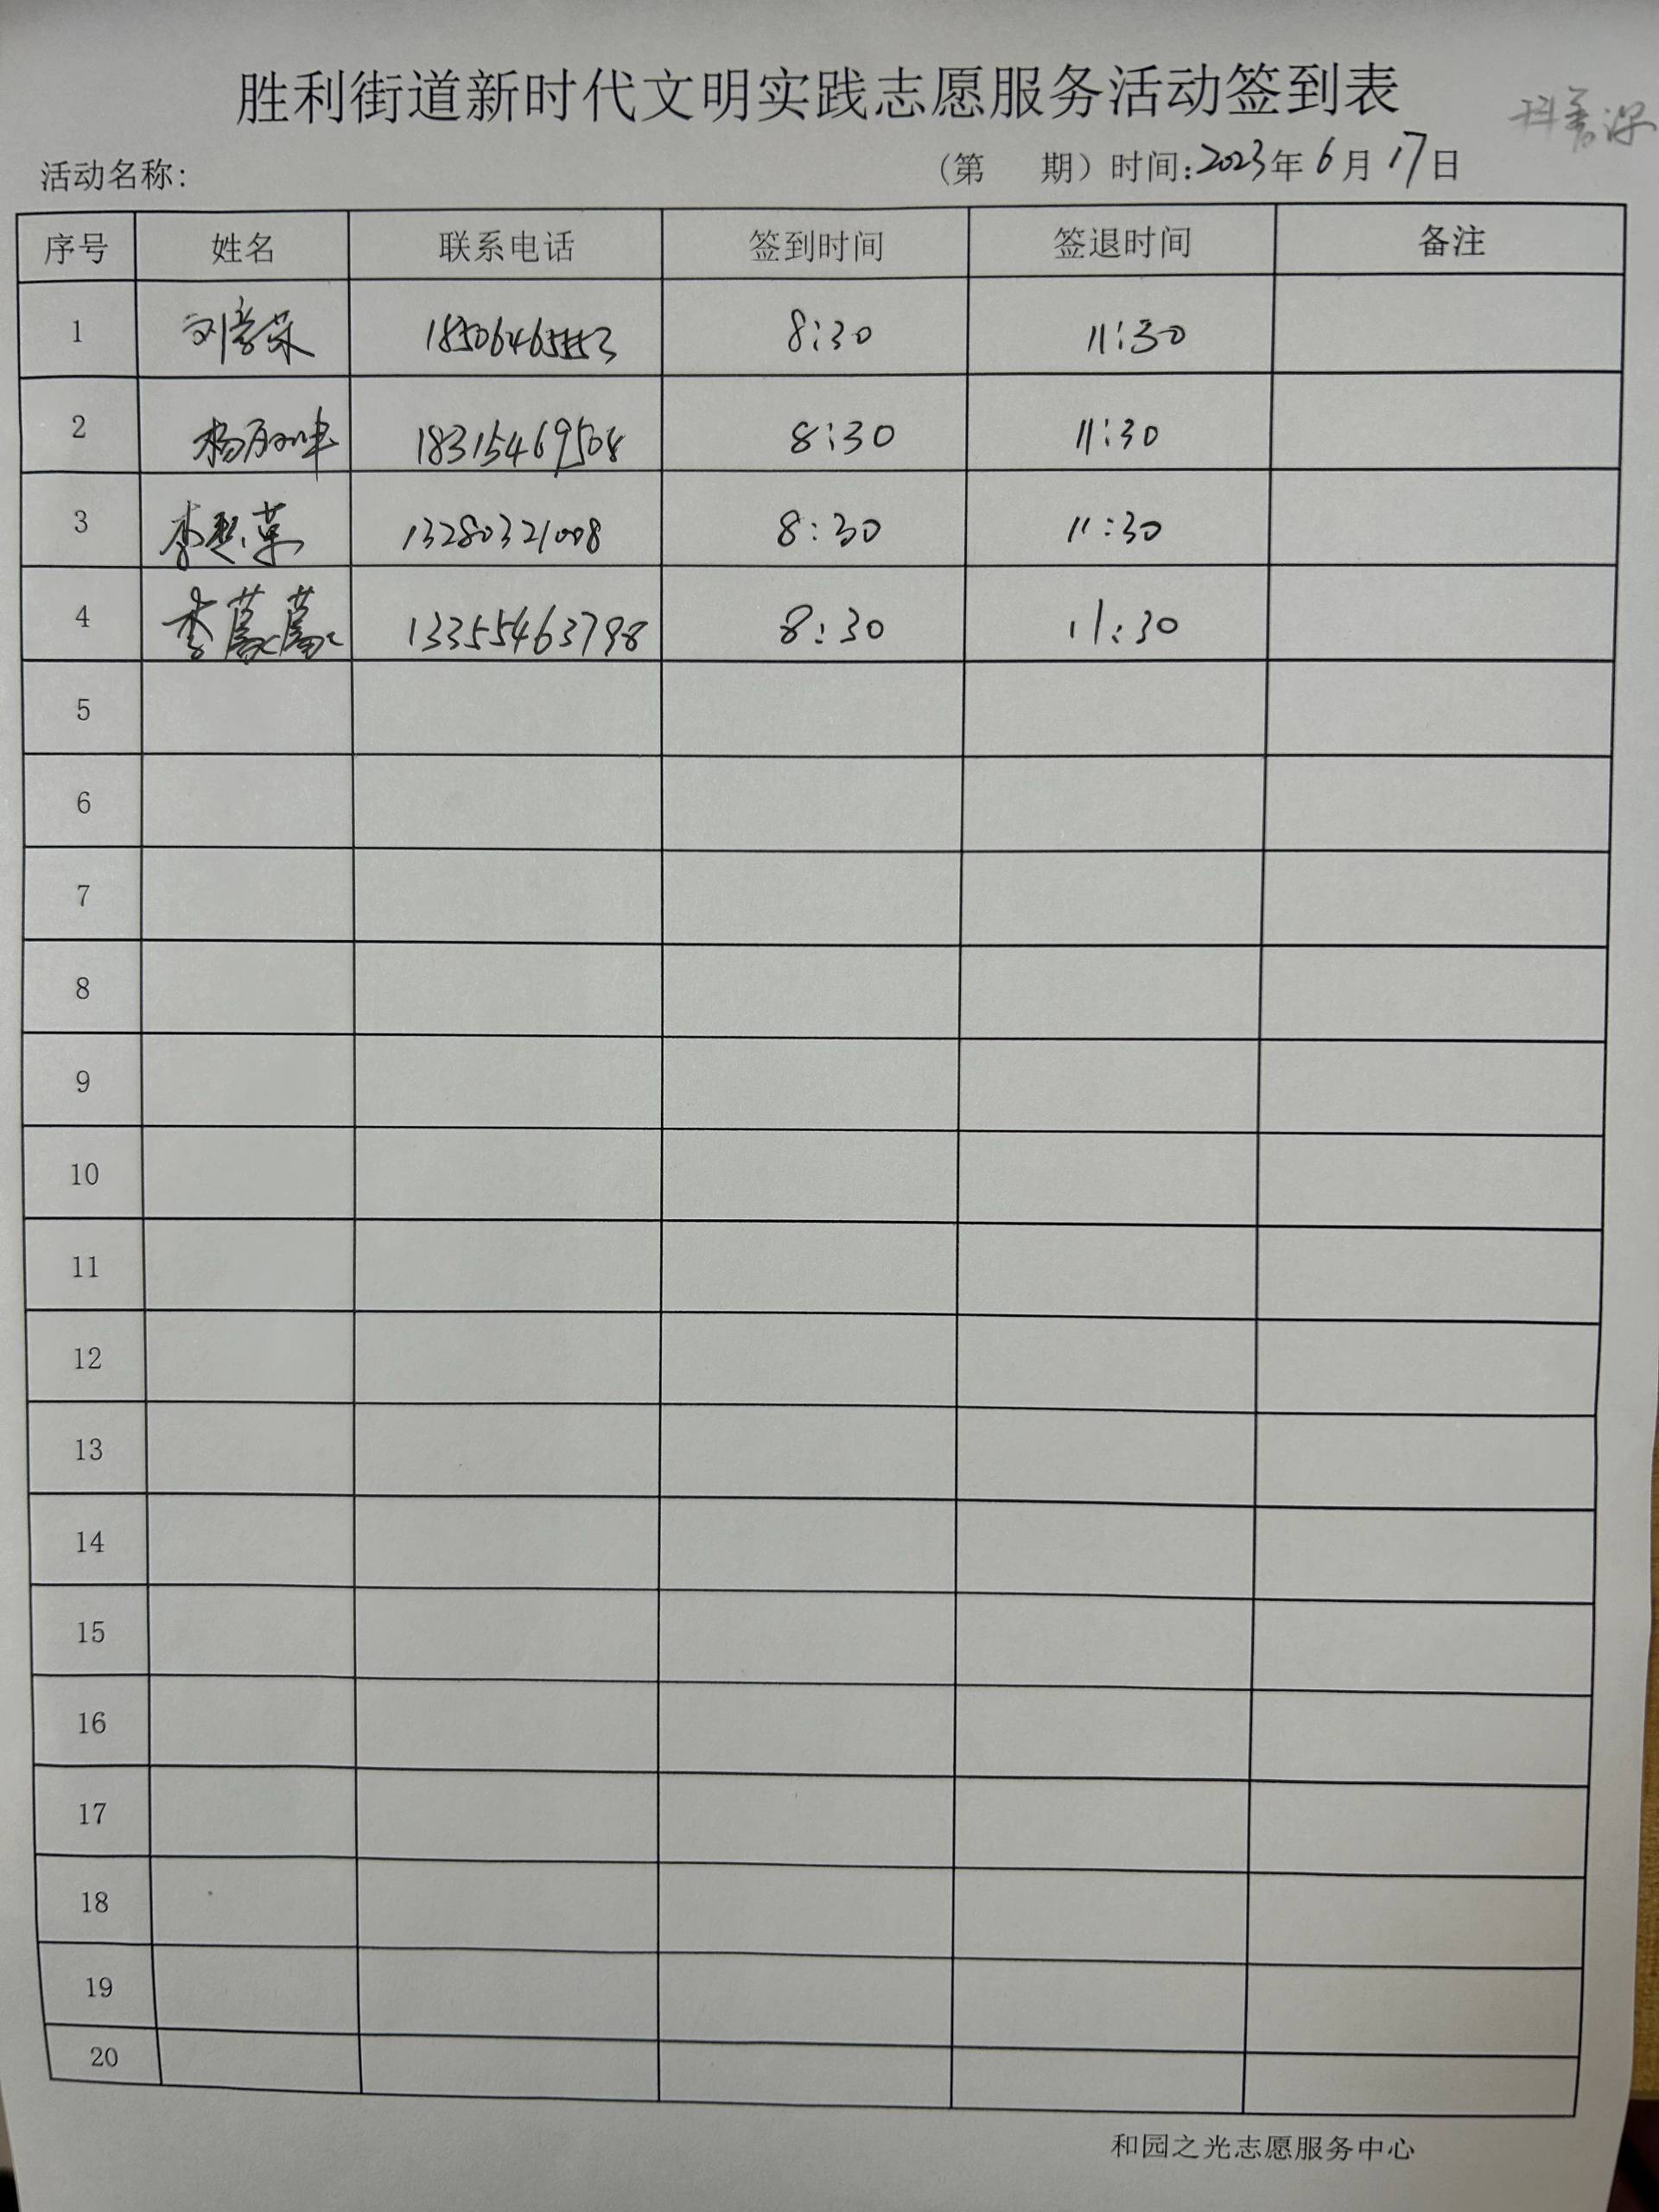 胜利街道新时代文明实践志愿服务活动签到表
活动名称: (第 期) 时间:2023年6月17日
序号 姓名 联系电话 签到时间 签退时间 备注
1 刘学荣 18506465553 8:30 11:30
2 杨 18315469508 8:30 11:30
3 李 13280321008 8:30 11:30
4 李 13355463798 8:30 11:30
5
6
7
8
9
10
11
12
13
14
15
16
17
18
19
20
和园之光志愿服务中心